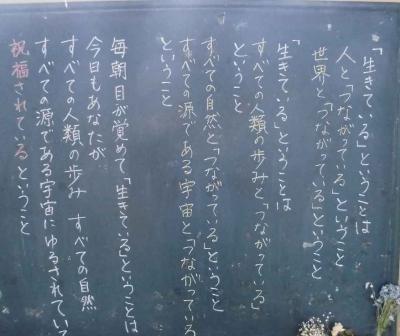 「生きている」ということは
人と「つながっている」ということ
世界と「つながっている」ということ
「生きている」ということは
すべての人類の歩みと「つながっている」
ということ
すべての自然と「つながっている」ということ
すべての源である宇宙と「つながっている
ということ
毎朝目が覚めて「生きている」ということは
今日もあなたが
すべての人類の歩み すべての自然
すべての源である宇宙にゆるされてい
祝福されているということ